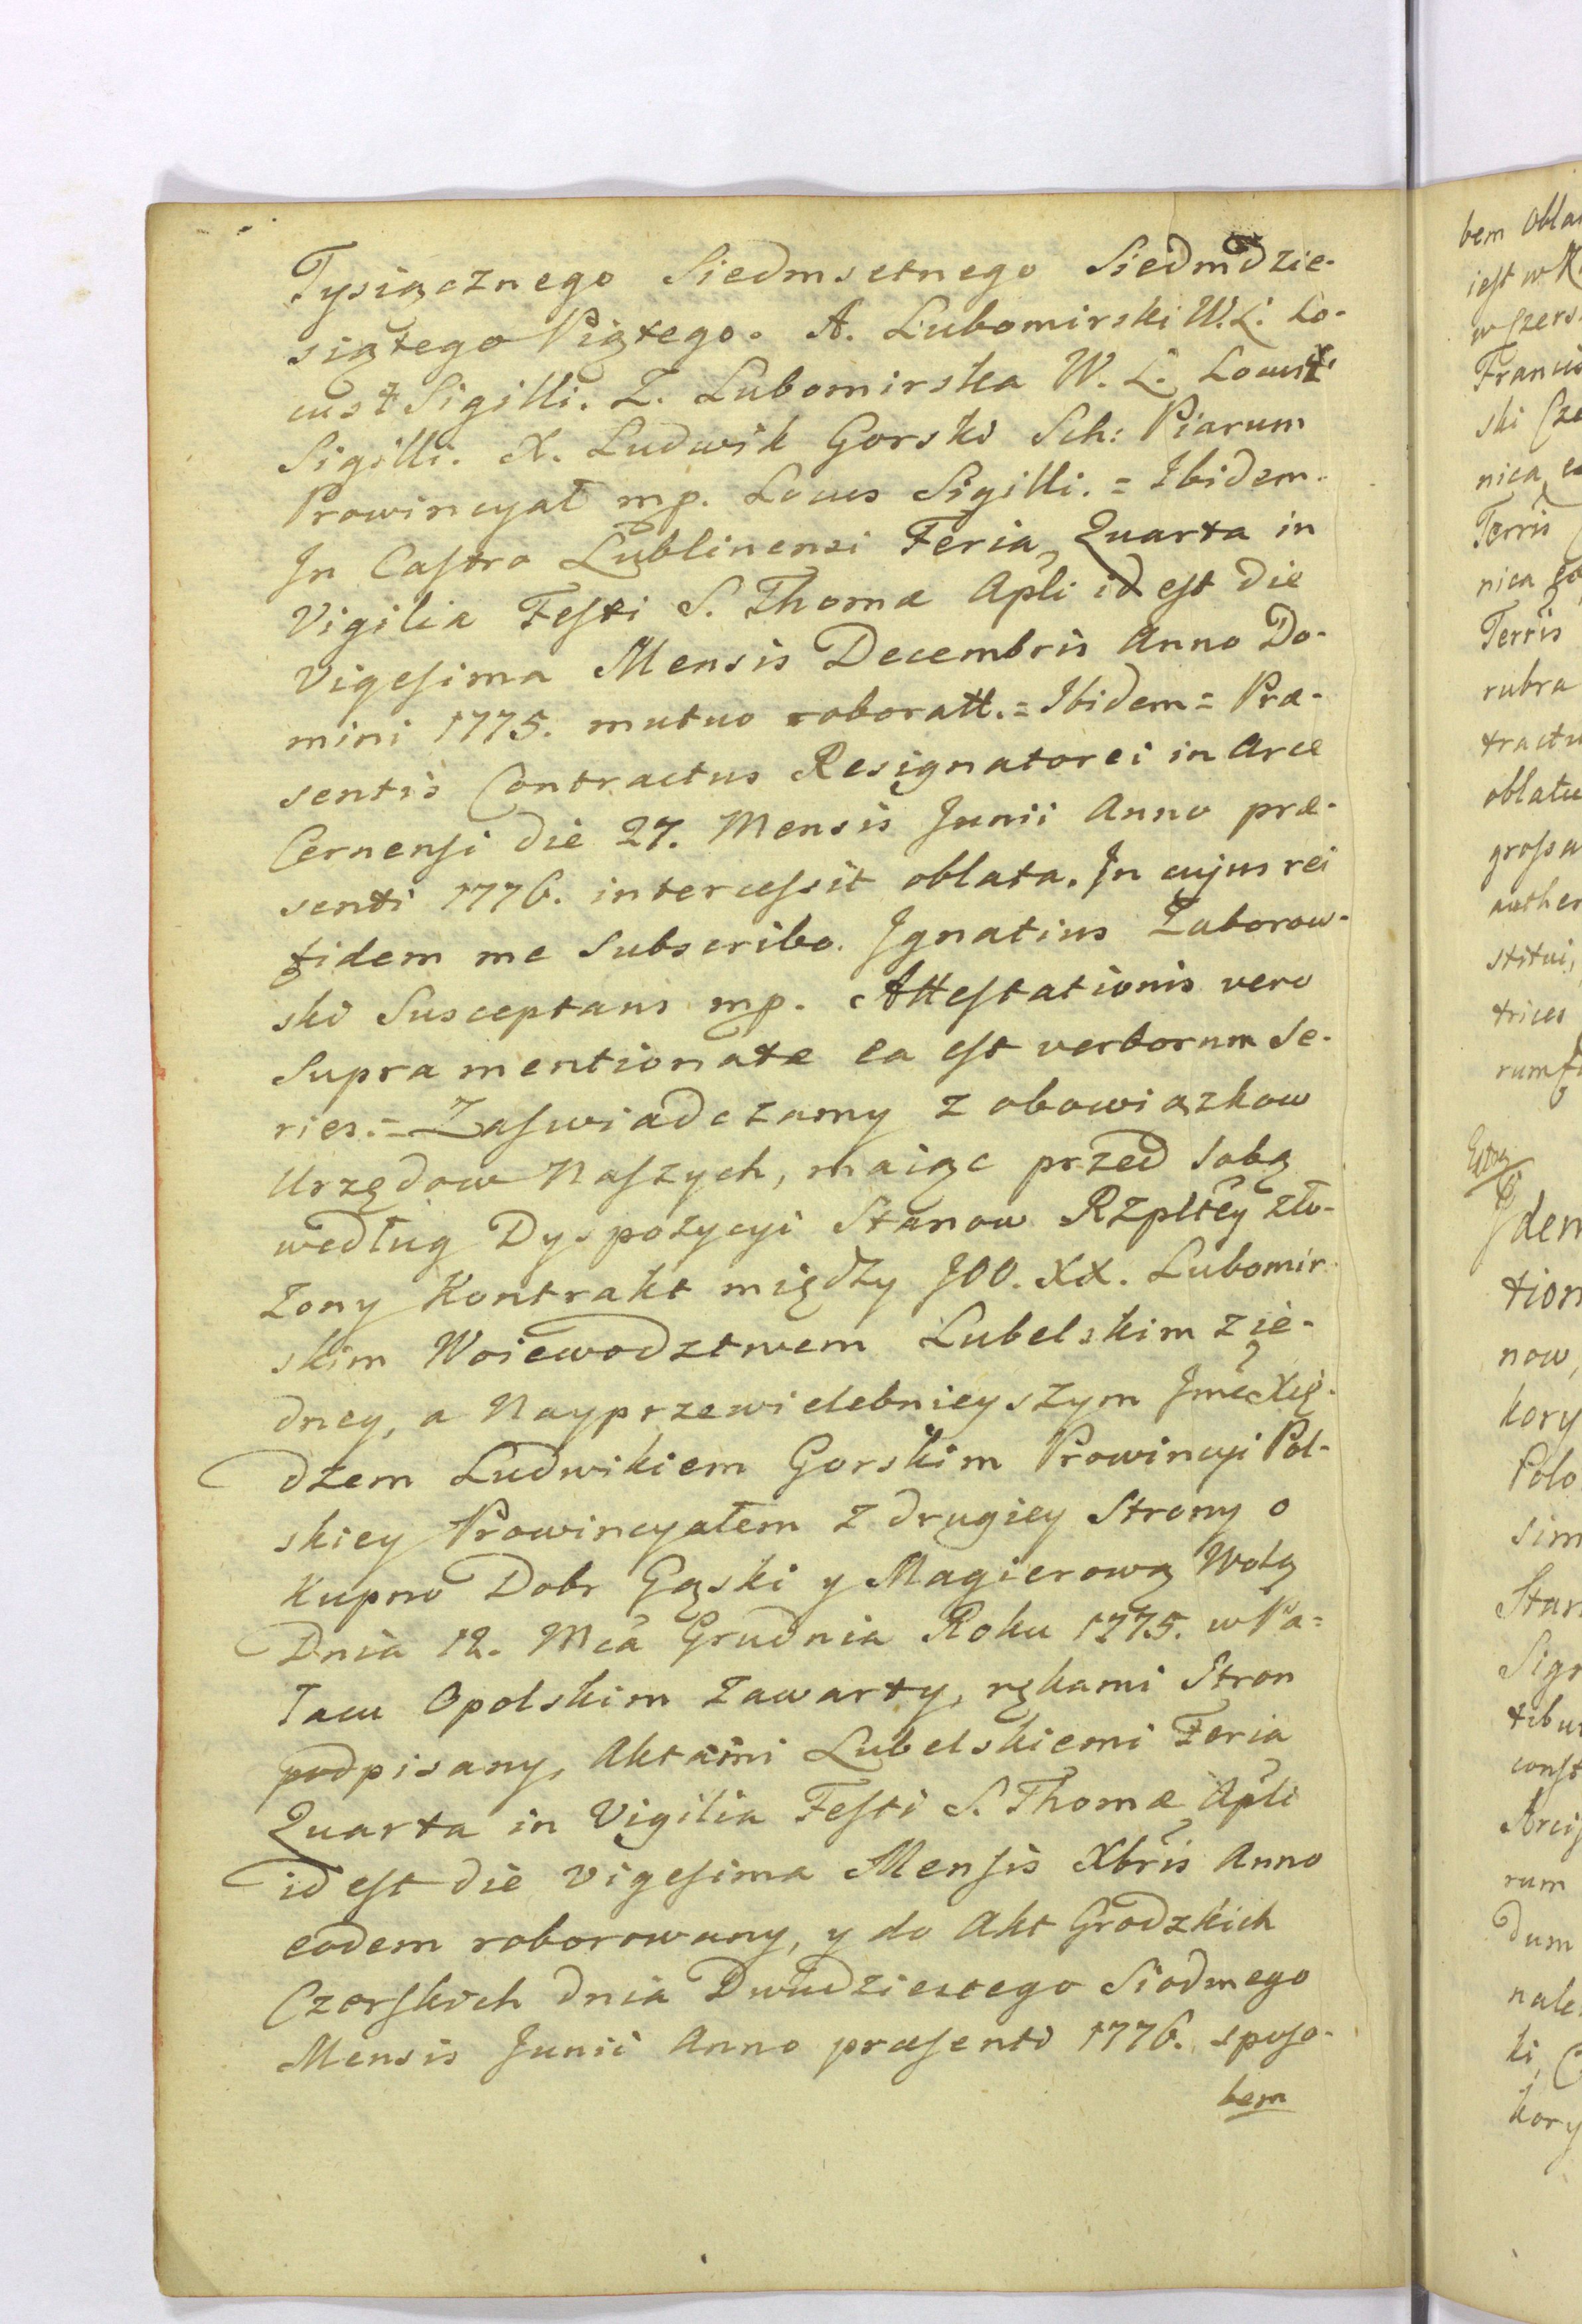 Tysiącznego Siedmsetnego Siedmdzie-
siątego Piątego. A. Lubomirski W. L. Lo-
cus Sigilli. Z. Lubomirska W. L. Locus
Sigilli. X. Ludwik Gorski Sch: Piarum
Prowincyał mp. Locus Sigilli. = Ibidem.
In Castro Lublinensi Feria Quarta in
Vigilia Festi S. Thomæ Apli id est die
Vigesima Mensis Decembris Anno Do-
mini 1775. mutuo roboratt. = Ibidem = Præ-
sentis Contractus Resignatorei in Arce
Cernensi die 27. Mensis Junii Anno præ-
senti 1776. intercessit oblata. In cujus rei
fidem me Subscribo. Ignatius Zaborow-
ski Susceptans mp. Attestationis vero
Supra mentionatæ ea est verborum Se-
ries. = Zaswiadczamy z obowiązkow
Urzędow Naszych, maiąc przed Sobą
według Dyspozycyi Stanow Rzpltey zło-
żony Kontrakt między JOO. XX. Lubomir-
skim Woiewodztwem Lubelskim z ie-
dney, a Nayprzewielebnieyszym Jmć Xię-
dzem Ludwikiem Gorskim Prowincyi Pol-
skiey Prowincyałem z drugiey Strony o
Kupno Dobr Gąski y Magierową Wolą
Dnia 12. Mca Grudnia Roku 1775. w Pa-
łacu Opolskim Zawarty, rękami Stron
podpisany, Aktami Lubelskiemi Feria
Quarta in Vigilia Festi S. Thomæ Apli
id est die vigesima Mensis Xbris Anno
eodem roborowany, y do Akt Grodzkich
Czerskich dnia Dwudziestego Siodmego
Mensis Junii Anno præsenti 1776. sposo-
bem
bem
iest w
w Czers
ski Cze
nica
Terris
nica
Terris
rubra
tractu
oblatu
grossa
auther
stitui,
trices
rum
dem
tion
now,
kory
Polo
sim
Star
Sigr
const
rum
dum
nale
ki,
kory